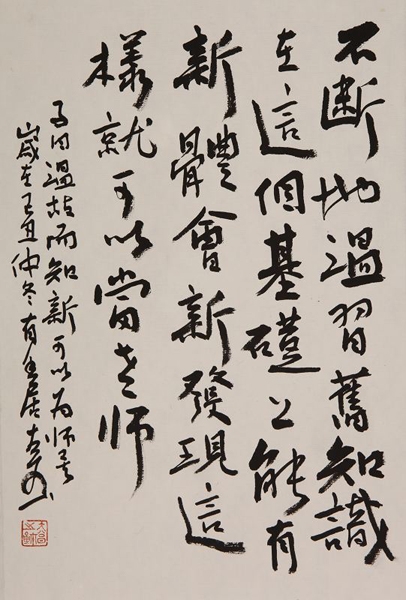 不断地温習舊知識
在這個基礎上能有
新體會新發現這
樣就可以當老师
子曰温故而知新可以为师矣
歲在辛丑仲冬